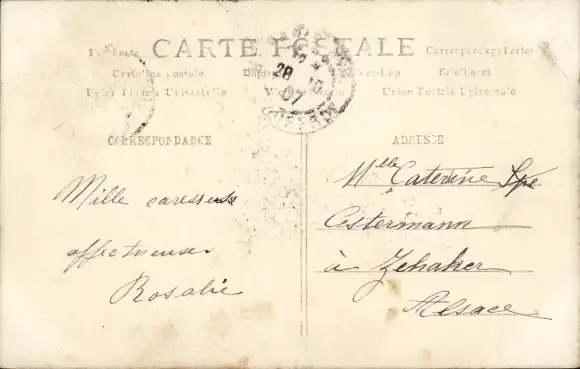 CARTE POSTALE
Correspondenz-Karte
Cartolina Postale
Union Postale Universelle
Union Postale Universale
28
07
CORRESPONDANCE
ADRESSE
Mille caresses
affectueuses
Rosalie
Mlle Caterine
Ostermann
à Zehaker
Alsace